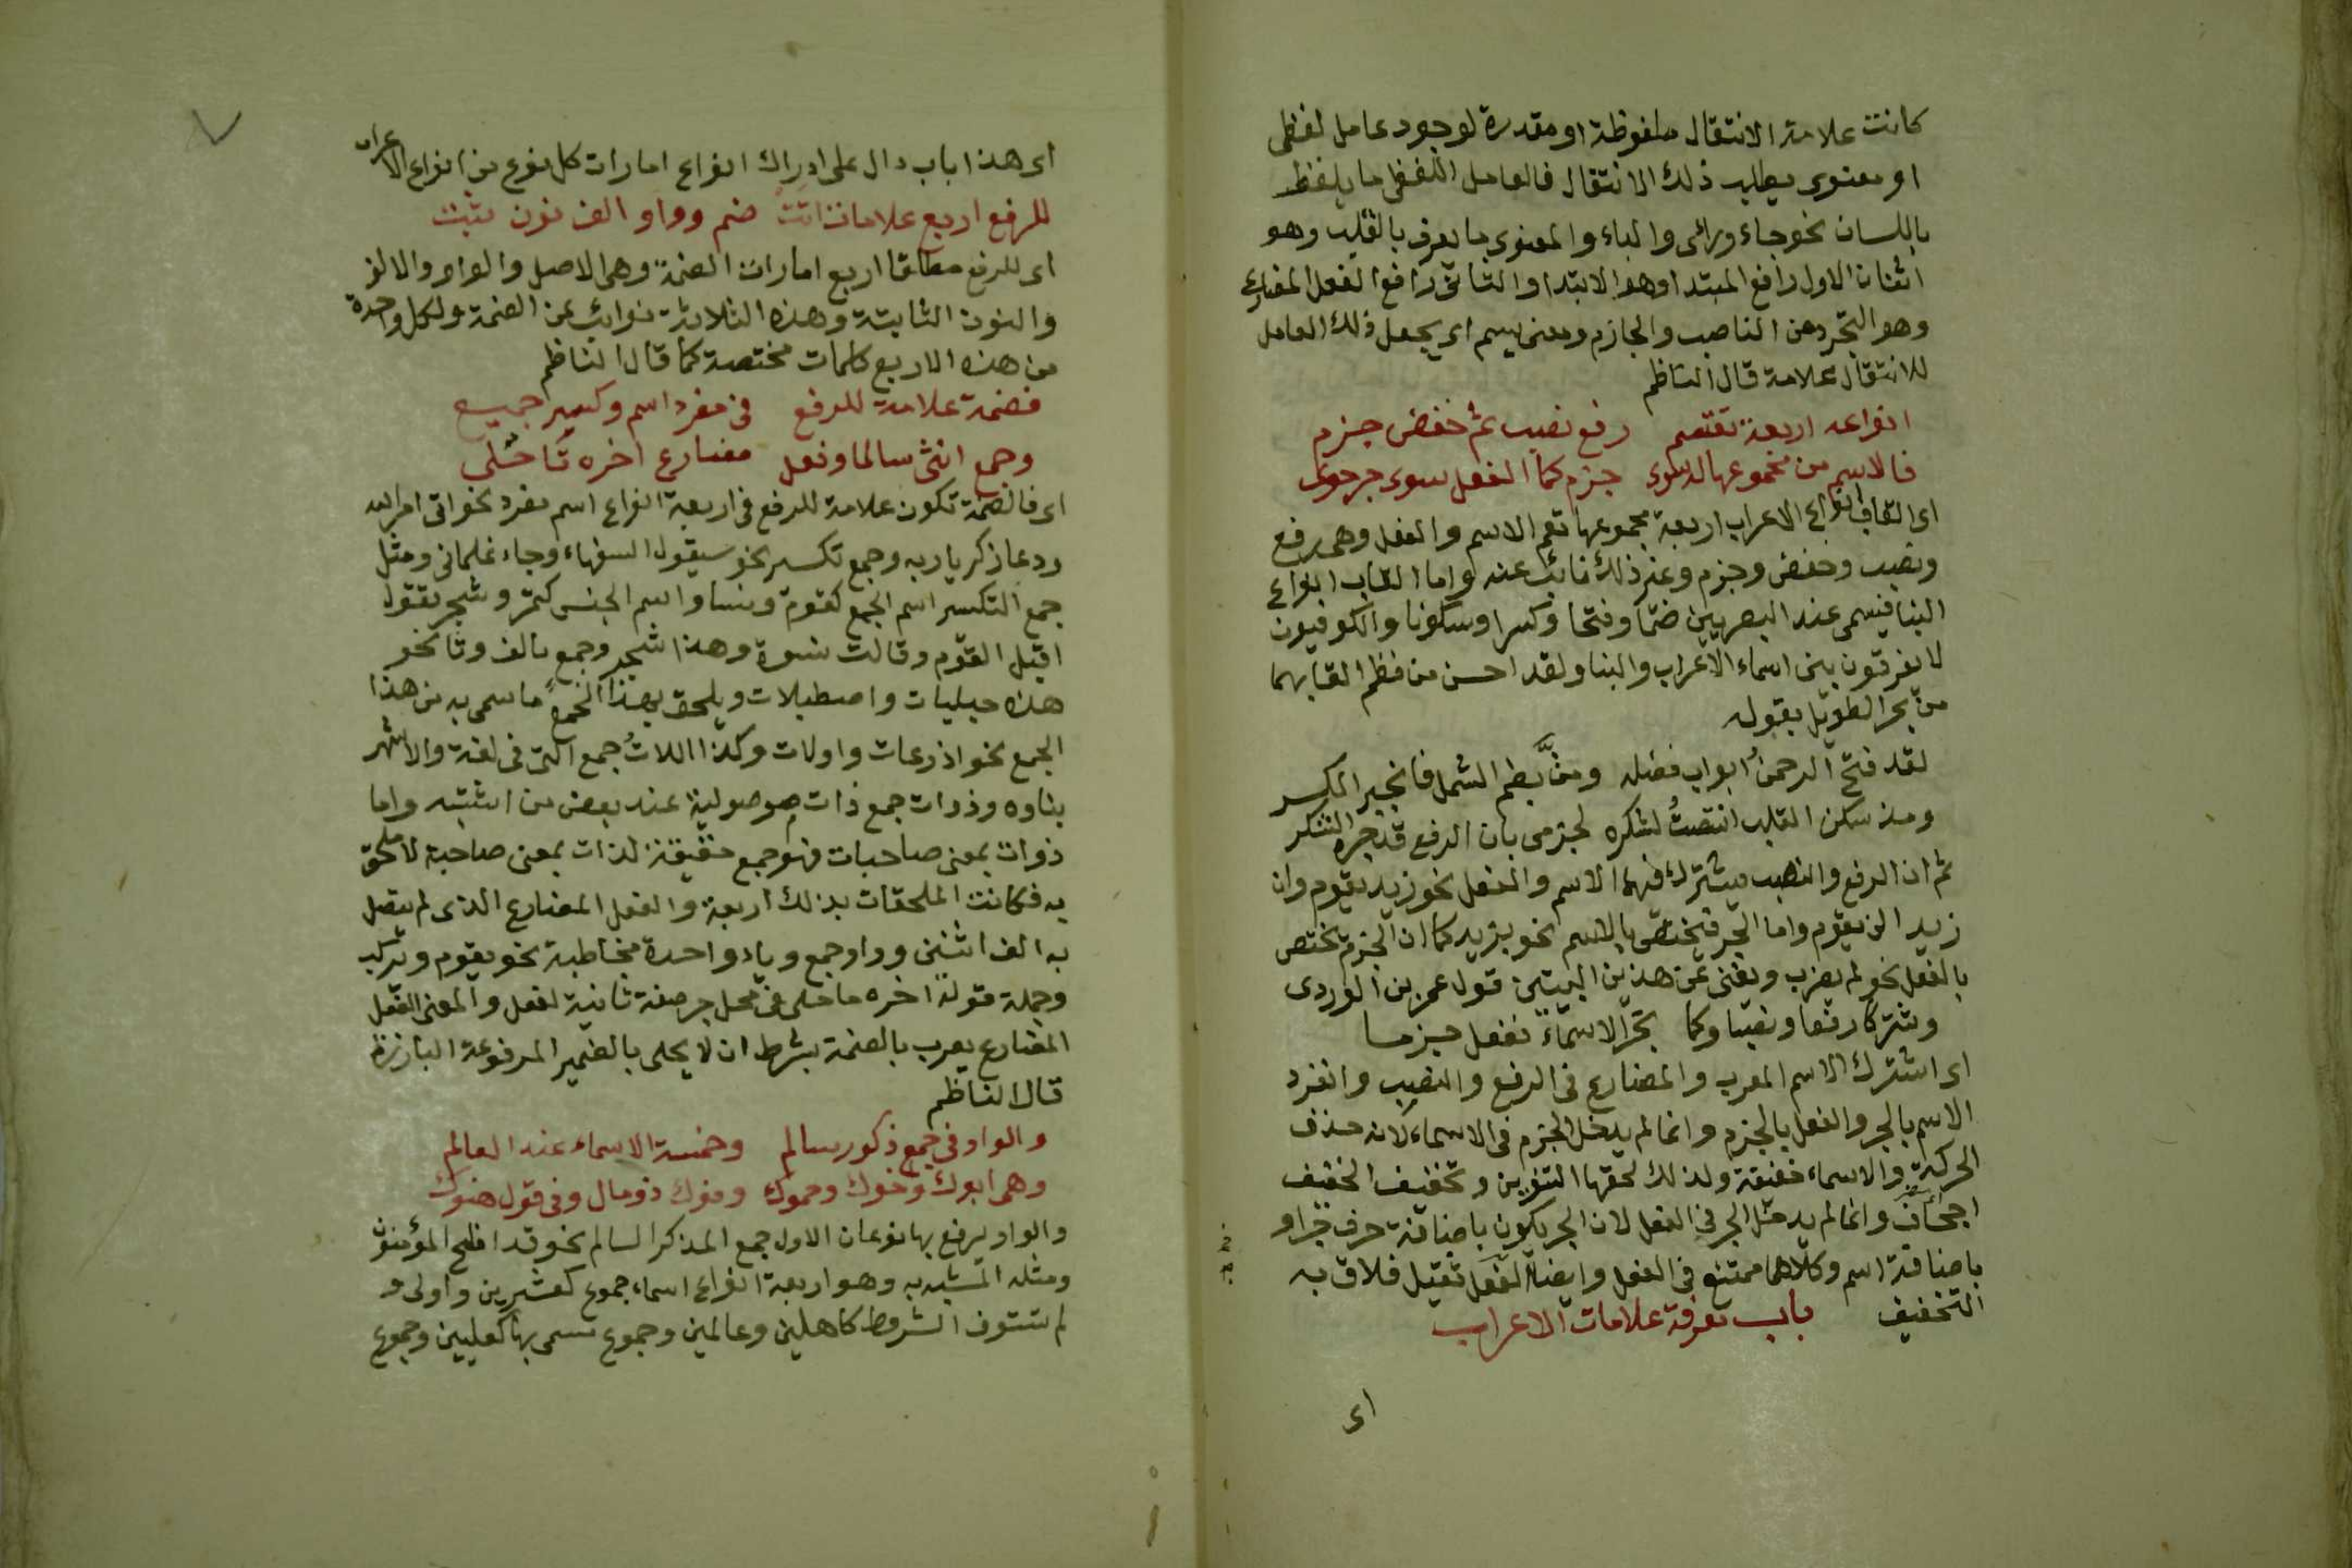 كانت علامة الانتقال ملفوظة او مقدرة لوجود عامل لفظى
او معنوى يطلب ذلك الانتقال فالعامل اللفظى ما يلفظ
باللسان نحو جاء وراى والباء والمعنوى ما يعرف بالقلب وهو
اثنان الاول رافع المبتدا وهو الابتدا والثانى رافع الفعل المضارع
وهو التجرد من الناصب والجازم ومعنى يسم اى يجعل ذلك العامل
للانتقال علامة قال الناظم
انواعه اربعة تقتسم رفع نصب ثم خفض جزم
فالاسم من مجموعها له سوى جزم كما الفعل سوى جر حوى
اى القاب انواع الاعراب اربعة مجموعها تعم الاسم والفعل وهى رفع
ونصب وخفض وجزم وغير ذلك نائب عنه واما القاب انواع
البنا فيسمى عند البصريين ضما وفتحا وكسرا وسكونا والكوفيون
لا يفرقون بين اسماء الاعراب والبنا ولقد احسن من نظم القابهما
من بحر الطويل بقوله
لقد فتح الرحمنُ ابواب فضله ومنَّ بضم الشمل فانجبر الكسر
ومذ سكن القلب انتصبتُ لشكره لجزمى بان الرفع قد جره الشكر
ثم ان الرفع والنصب يشترك فيهما الاسم والفعل نحو زيد يقوم وان
زيدا لن يقوم واما الجر فيختص بالاسم نحو بزيد كما ان الجزم يختص
بالفعل نحو لم يضرب ويغنى عن هذين البيتين قول عمر بن الوردى
وشتركا رفعا ونصبا وكما تجر الاسماء ففعل جزما
اى اشترك الاسم المعرب والمضارع فى الرفع والنصب وانفرد
الاسم بالجر والفعل بالجزم وانما لم يدخل الجزم فى الاسماء لانه حذف
الحركة والاسماء خفيفة ولذلك لحقها التنوين وتخفيف الخفيف
اجحاف وانما لم يدخل الجر فى الفعل لان الجر يكون باضافة حرف جر او
باضافة اسم وكلاهما ممتنع فى الفعل وايضا الفعل ثقيل فلاق به
التخفيف باب معرفة علامات الاعراب
اى
اى هذا باب دال على ادراك انواع امارات كل نوع من انواع الاعراب
للرفع اربع علامات اتت ضم وواو الف نون ثبت
اى للرفع مطلقا اربع امارات الضمة وهى الاصل والواو والالف
والنون الثابتة وهذه الثلاثة نوائب عن الضمة ولكل واحدة
من هذه الاربع كلمات مختصة كما قال الناظم
فضمة علامة للرفع فى مفرد اسم وكسير جميع
وجمع انثى سالما وفعل مضارع اخره ما حلى
اى فالضمة تكون علامة للرفع فى اربعة انواع اسم مفرد نحو اتى امر الله
ودعا زكريا ربه وجمع تكسير نحو سيقول السفهاء وجاء غلمانى ومثل
جمع التكسير اسم الجمع كقوم ونسا واسم الجنس كتمر وشجر تقول
اقبل القوم وقالت نسوة وهذا شجر وجمع بالف وتا نحو
هذه حبليات واصطبلات ويلحق بهذا الجمع ما سمى به من هذا
الجمع نحو اذرعات واولات وكذا اللاتُ جمع التى فى لغة والاشهر
بناوه وذوات جمع ذات موصولية عند بعض من اثبته واما
ذوات بمعنى صاحبات فهو جمع حقيقة لذات بمعنى صاحبة لا ملحق
به فكانت الملحقات بذلك اربعة والفعل المضارع الذى لم يتصل
به الف اثنين وواو جمع وياء واحدة مخاطبة نحو يقوم وتركب
وجملة قوله اخره ما حلى فى محل جر صفة ثانية لفعل والمعنى الفعل
المضارع يعرب بالضمة بشرط ان لا يحلى بالضمير المرفوعة البارزة
قال الناظم
والواو فى جمع ذكور سالم وخمسة الاسماء عند العالم
وهى ابوك واخوك وحموك وفوك ذو مال وفى قول هنوك
والواو يرفع بها نوعان الاول جمع المذكر السالم نحو قد افلح المؤمنون
ومثله المشبه به وهو اربعة انواع اسماء جموع كعشرين واولى و
لم تستوف الشروط كاهلين وعالمين وجموع تسمى بها كعليين وجموع